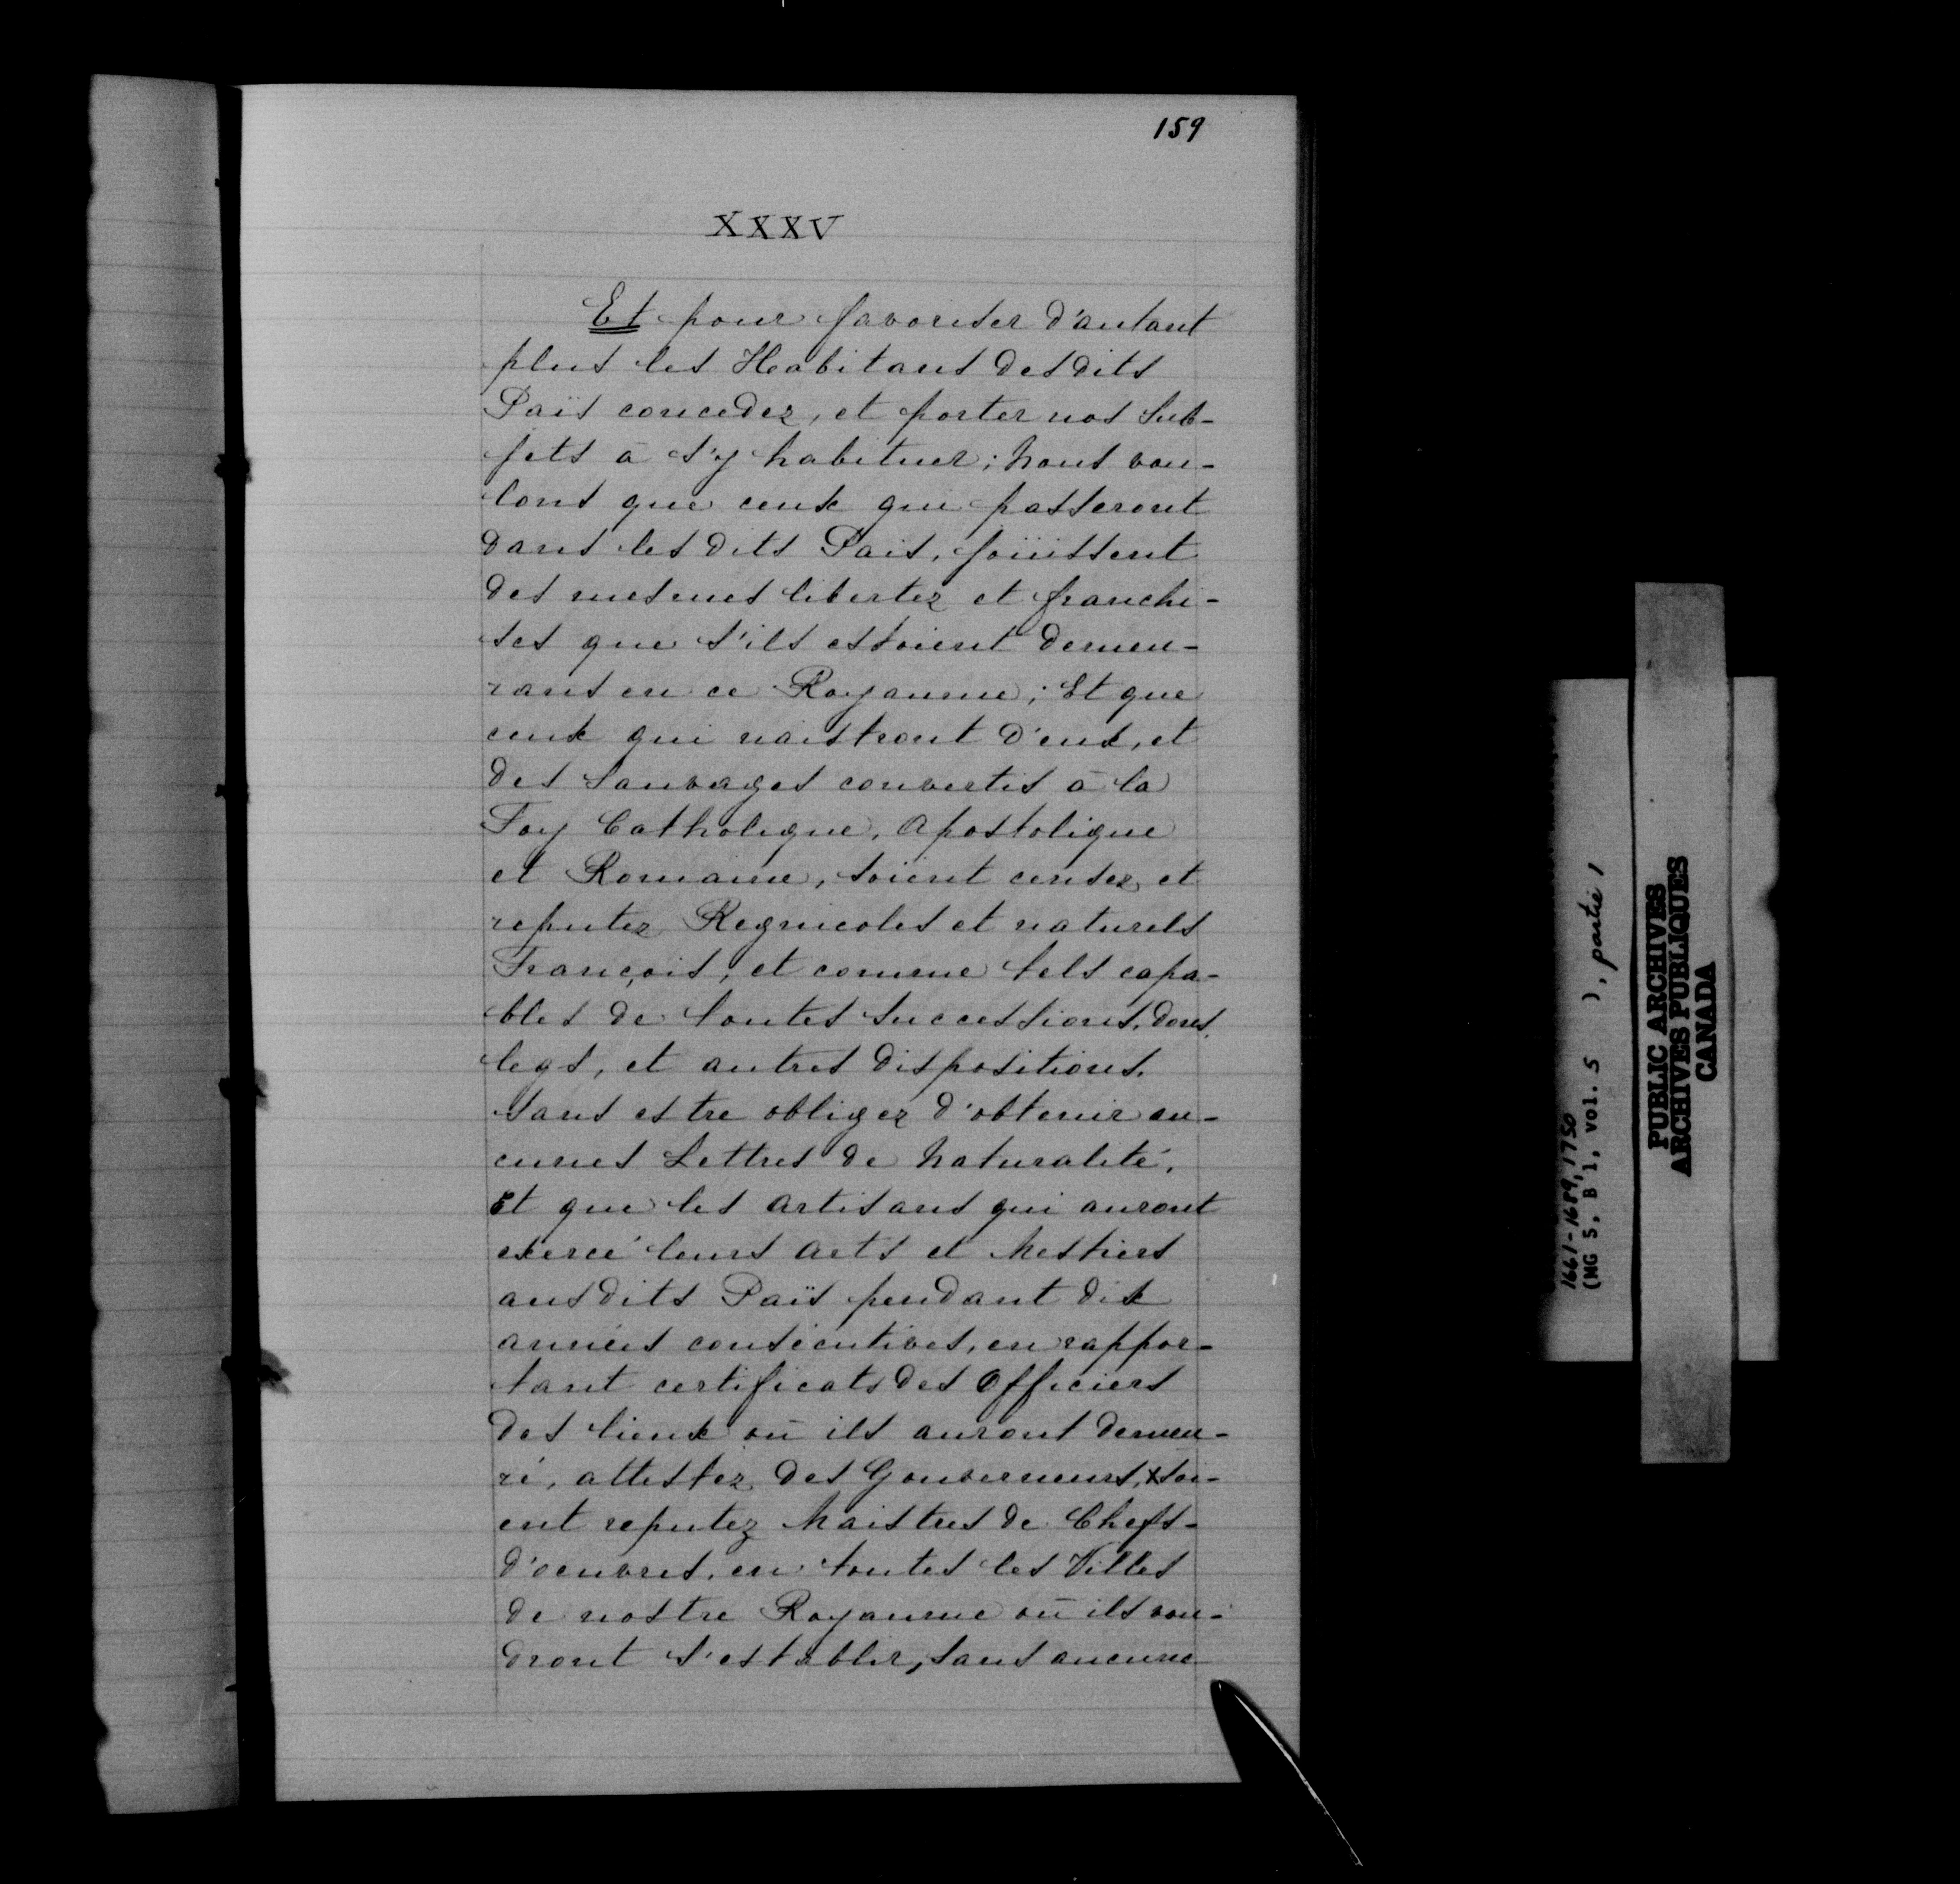 159
XXXV
Et pour favoriser d'autant
plus les Habitans desdits
Païs concedez, et porter nos Sub-
jets à s'y habituer; Nous vou-
lons que ceux qui passeront
dans lesdits Païs, joüissent
des mesmes libertez et franchi-
ses que s'ils estoient demeu-
rans en ce Royaume; Et que
ceux qui naistront d'eux, et
des Sauvages convertis à la
Foy Catholique, Apostolique
et Romaine, soient censez et
reputez Regnicoles et naturels
François, et comme tels capa-
bles de toutes successions, dons,
legs, et autres dispositions,
sans estre obligez d'obtenir au-
cunes Lettres de Naturalité.
Et que les Artisans qui auront
exercé leurs Arts et Mestiers
ausdits Païs pendant dix
années consécutives, en rappor-
tant certificats des Officiers
des lieux où ils auront demeu-
ré, attestez des Gouverneurs, x soi-
ent reputez Maistres de Chefs-
d'oeuvres, en toutes les Villes
de nostre Royaume où ils vou-
dront s'establir, sans aucune
1661-1689, 1750
(MG 5, B 1, vol. 5 ), partie 1
PUBLIC ARCHIVES
ARCHIVES PUBLIQUES
CANADA